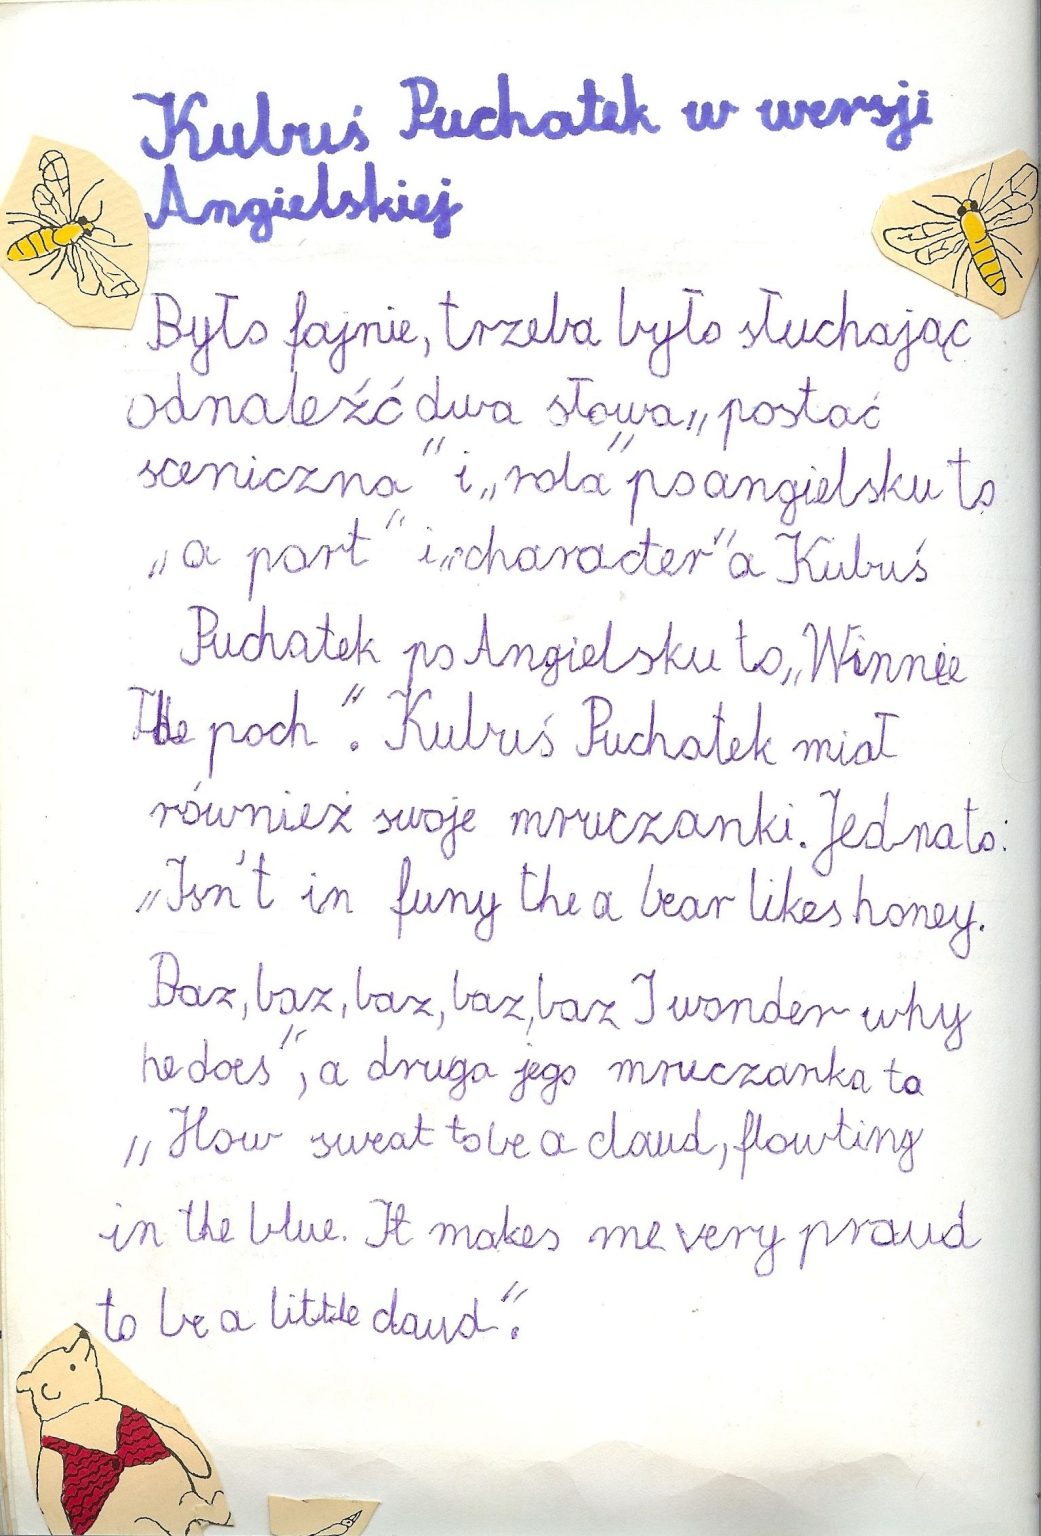 Kubuś Puchatek w wersji
Angielskiej
Było fajnie, trzeba było słuchając
odnaleźć dwa słowa „postać
sceniczna" i „rola" po angielsku to
„a part" i „character" a Kubuś
Puchatek po Angielsku to „Winnie
The poch". Kubuś Puchatek miał
również swoje mruczanki. Jedna to:
„Isn't in funy the a bear likes honey.
Baz, baz, baz, baz, baz I wonder why
he does", a druga jego mruczanka to
„How sweat to be a claud, flowting
in the blue. It makes me very praud
to be a little claud".